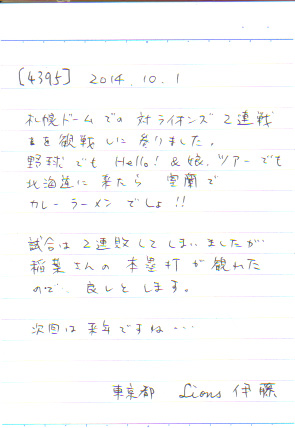 [4395] 2014.10.1
札幌ドームでの対ライオンズ2連戦
を観戦しに参りました。
野球でも Hello! & 娘。ツアーでも
北海道に来たら 雲蘭で
カレーラーメンでしょ!!
試合は2連敗してしまいましたが
稲葉さんの本塁打が観れた
ので、良しとします。
次回は来年ですね…
東京都 Lions 伊藤